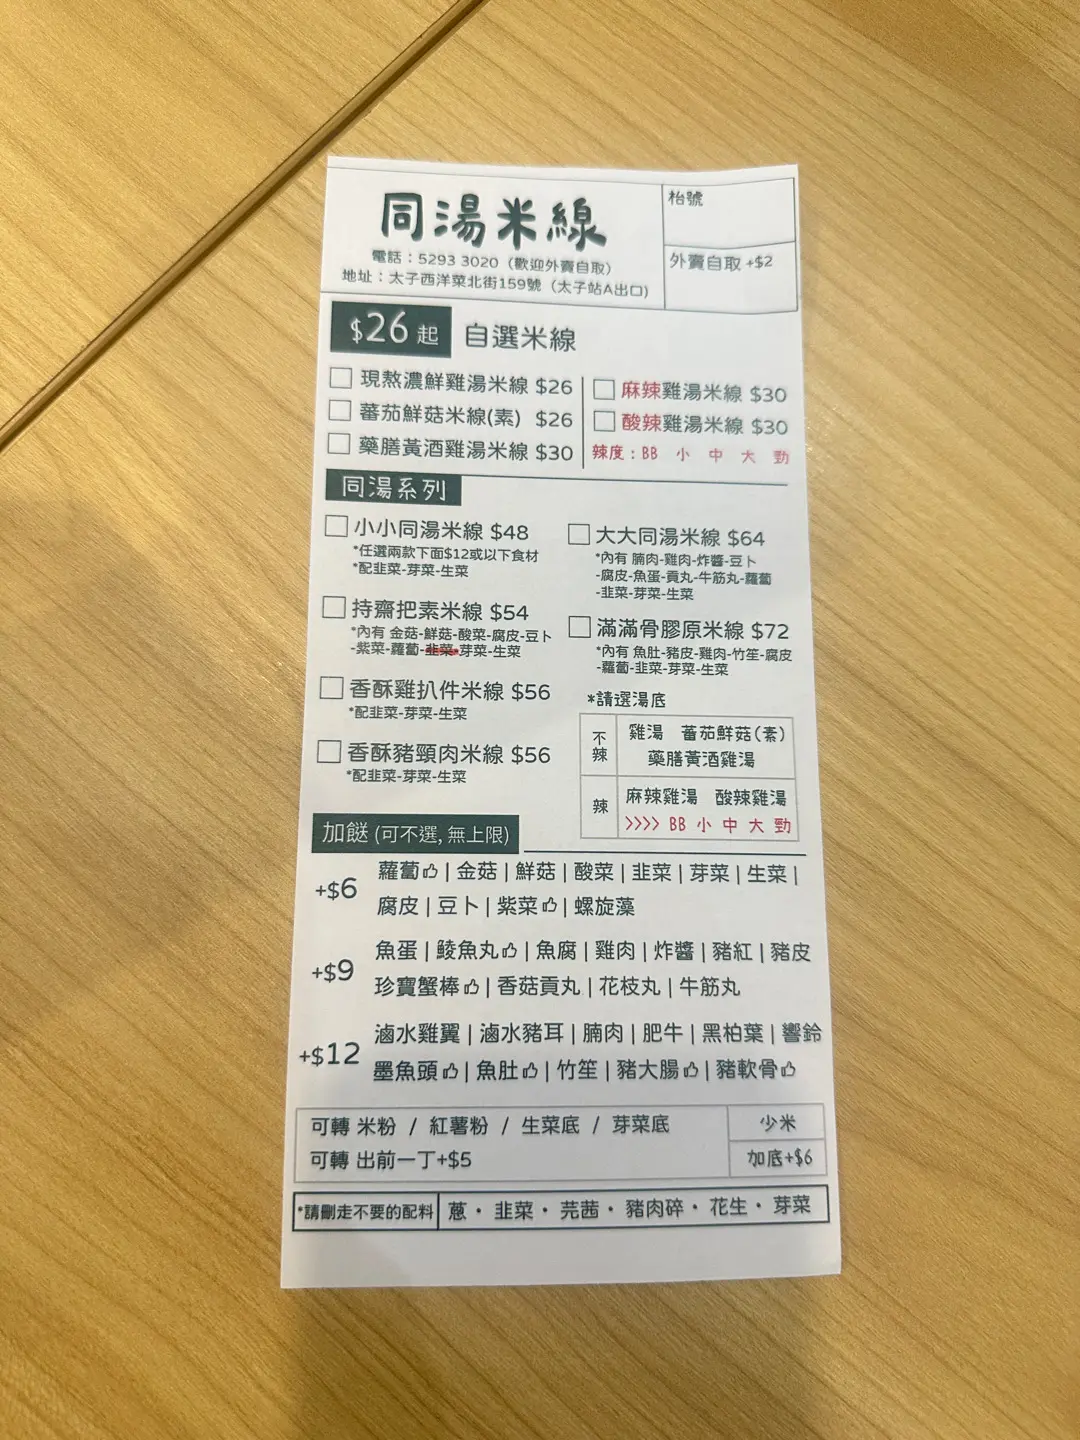 同湯米線
電話：5293 3020（歡迎外賣自取）
地址：太子西洋菜北街159號（太子站A出口）
枱號
外賣自取 +$2
$26起 自選米線
現熬濃鮮雞湯米線 $26
蕃茄鮮菇米線(素) $26
藥膳黃酒雞湯米線 $30
麻辣雞湯米線 $30
酸辣雞湯米線 $30
辣度：BB 小 中 大 勁
同湯系列
小小同湯米線 $48
*任選兩款下面$12或以下食材
*配韭菜-芽菜-生菜
持齋把素米線 $54
*內有 金菇-鮮菇-酸菜-腐皮-豆卜
-紫菜-蘿蔔-韭菜-芽菜-生菜
香酥雞扒件米線 $56
*配韭菜-芽菜-生菜
香酥豬頸肉米線 $56
*配韭菜-芽菜-生菜
大大同湯米線 $64
*內有 腩肉-雞肉-炸醬-豆卜
-腐皮-魚蛋-貢丸-牛筋丸-蘿蔔
-韭菜-芽菜-生菜
滿滿骨膠原米線 $72
*內有 魚肚-豬皮-雞肉-竹笙-腐皮
-蘿蔔-韭菜-芽菜-生菜
*請選湯底
不辣
雞湯 蕃茄鮮菇(素)
藥膳黃酒雞湯
辣
麻辣雞湯 酸辣雞湯
>>>> BB 小 中 大 勁
加餸 (可不選, 無上限)
+$6
蘿蔔 | 金菇 | 鮮菇 | 酸菜 | 韭菜 | 芽菜 | 生菜 |
腐皮 | 豆卜 | 紫菜 | 螺旋藻
+$9
魚蛋 | 鯪魚丸 | 魚腐 | 雞肉 | 炸醬 | 豬紅 | 豬皮
珍寶蟹棒 | 香菇貢丸 | 花枝丸 | 牛筋丸
+$12
滷水雞翼 | 滷水豬耳 | 腩肉 | 肥牛 | 黑柏葉 | 響鈴
墨魚頭 | 魚肚 | 竹笙 | 豬大腸 | 豬軟骨
可轉 米粉 / 紅薯粉 / 生菜底 / 芽菜底
可轉 出前一丁+$5
少米
加底+$6
*請刪走不要的配料
蔥・韭菜・芫茜・豬肉碎・花生・芽菜